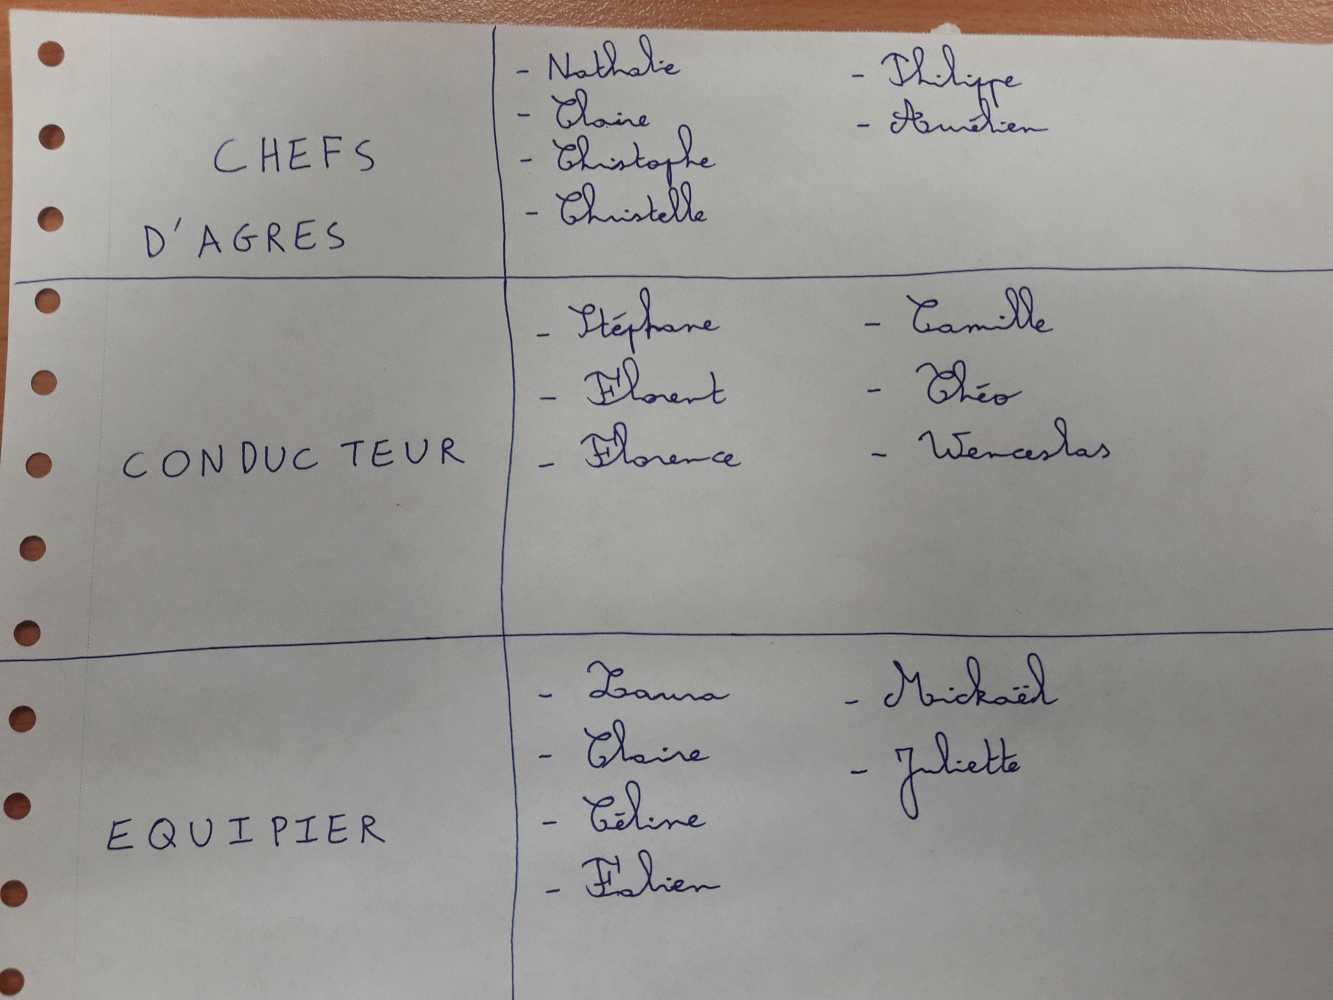 CHEFS
D'AGRES
- Nathalie
- Claire
- Christophe
- Christelle
- Philippe
- Aurélien
CONDUCTEUR
- Stéphane
- Florent
- Florence
- Camille
- Théo
- Wenceslas
EQUIPIER
- Laura
- Claire
- Céline
- Fabien
- Mickaël
- Juliette